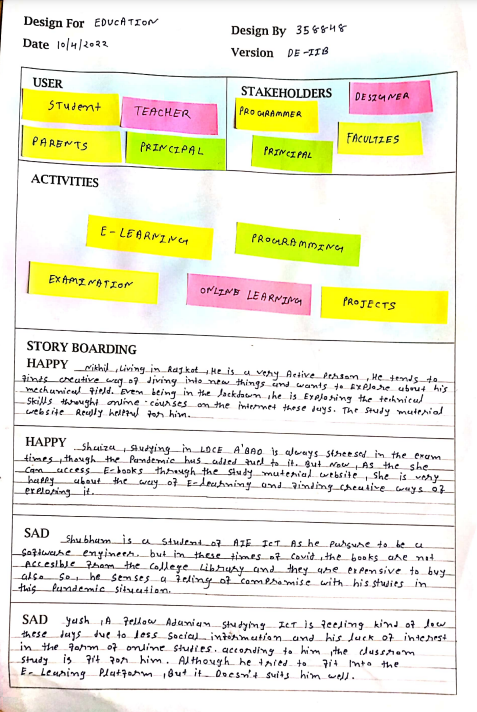 Design For EDUCATION
Design By 358848
Date 10/4/2022
Version DE-IIB
USER
STAKEHOLDERS
Student
TEACHER
PARENTS
PRINCIPAL
PROGRAMMER
DESIGNER
PRINCIPAL
FACULTIES
ACTIVITIES
E-LEARNING
PROGRAMMING
EXAMINATION
ONLINE LEARNING
PROJECTS
STORY BOARDING
HAPPY Nikhil, Living in Rajkot, He is a very Active Person, He tends to
finds creative way of diving into new things and wants to Explore about his
mechanical field. Even being in the lockdown, he is Exploring the technical
skills throught online courses on the internet these days. The study material
website Really helpful for him.
HAPPY Shaiza, studying in LDCE A'BAD is always streesed in the exam
times, though the Pandemic has added fuel to it. But Now, As the she
can access E-books through the study material website, She is very
happy about the way of E-learning and finding creative ways of
exploring it.
SAD Shubham is a student of AIE ICT As he pursure to be a
software engineer. but in these times of covid, the books are not
Accesible from the College Library and they are expensive to buy
also so, he senses a feling of compromise with his studies in
this Pandemic situation.
SAD Yash, A fellow Adanian studying ICT is feeling kind of low
these days due to less social and his luck of interest
in the form of online studies. according to him, the classroom
study is fit for him. Although he tried to fit Into the
E-Learing Platform, But it Doesn't suits him well.